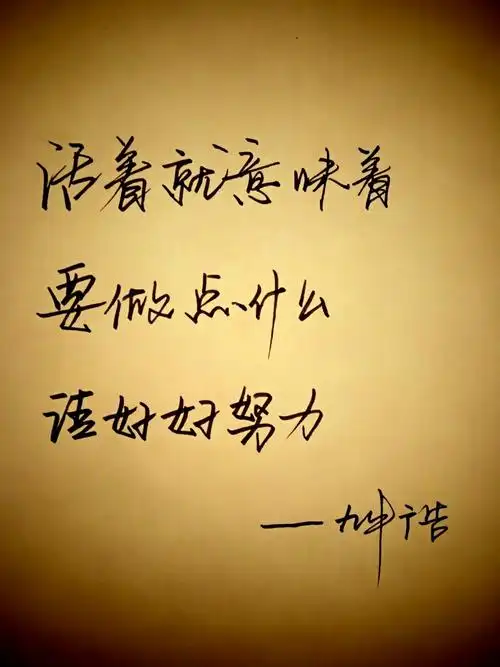 活着就意味着
要做点什么
请好好努力